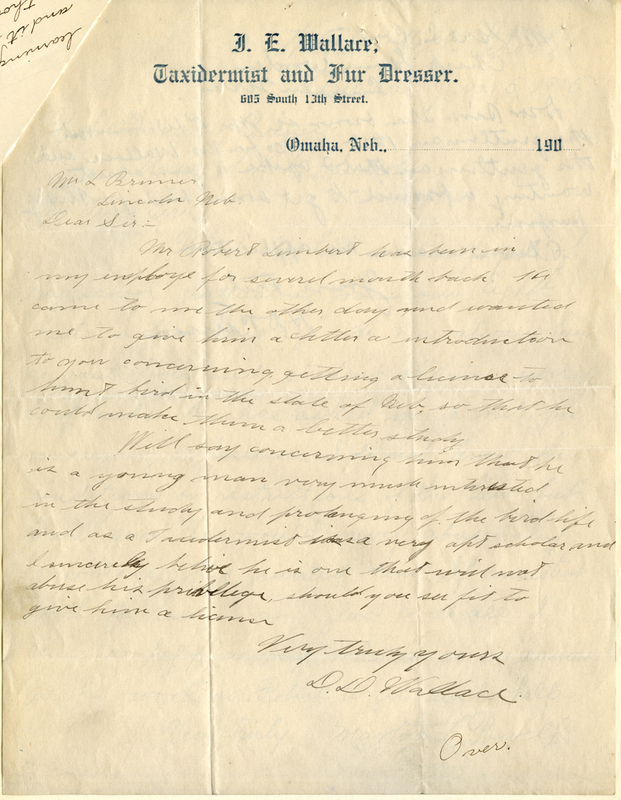 J. E. Wallace,
Taxidermist and Fur Dresser.
605 South 13th Street.
Omaha, Neb.,. 190
learning
and it
Mr L Bruner
Lincoln Neb
Dear Sir:-
Mr Robert Limbert has been in
my employe for severel month back. He
came to me the other day and wanted
me to give him a letter a introduction
to you concerning getting a licence to
hunt bird in the state of Neb, so that he
could make them a better study
Will say concerning him that he
is a young man very much intersted
in the study and prolonging of the bird life
and as a Taxidermist is a very apt scholar and
I sincerely belive he is one that will not
abuse his privellege, should you see fit to
give him a licence
Very truly yours
D. D. Wallace.
Over.